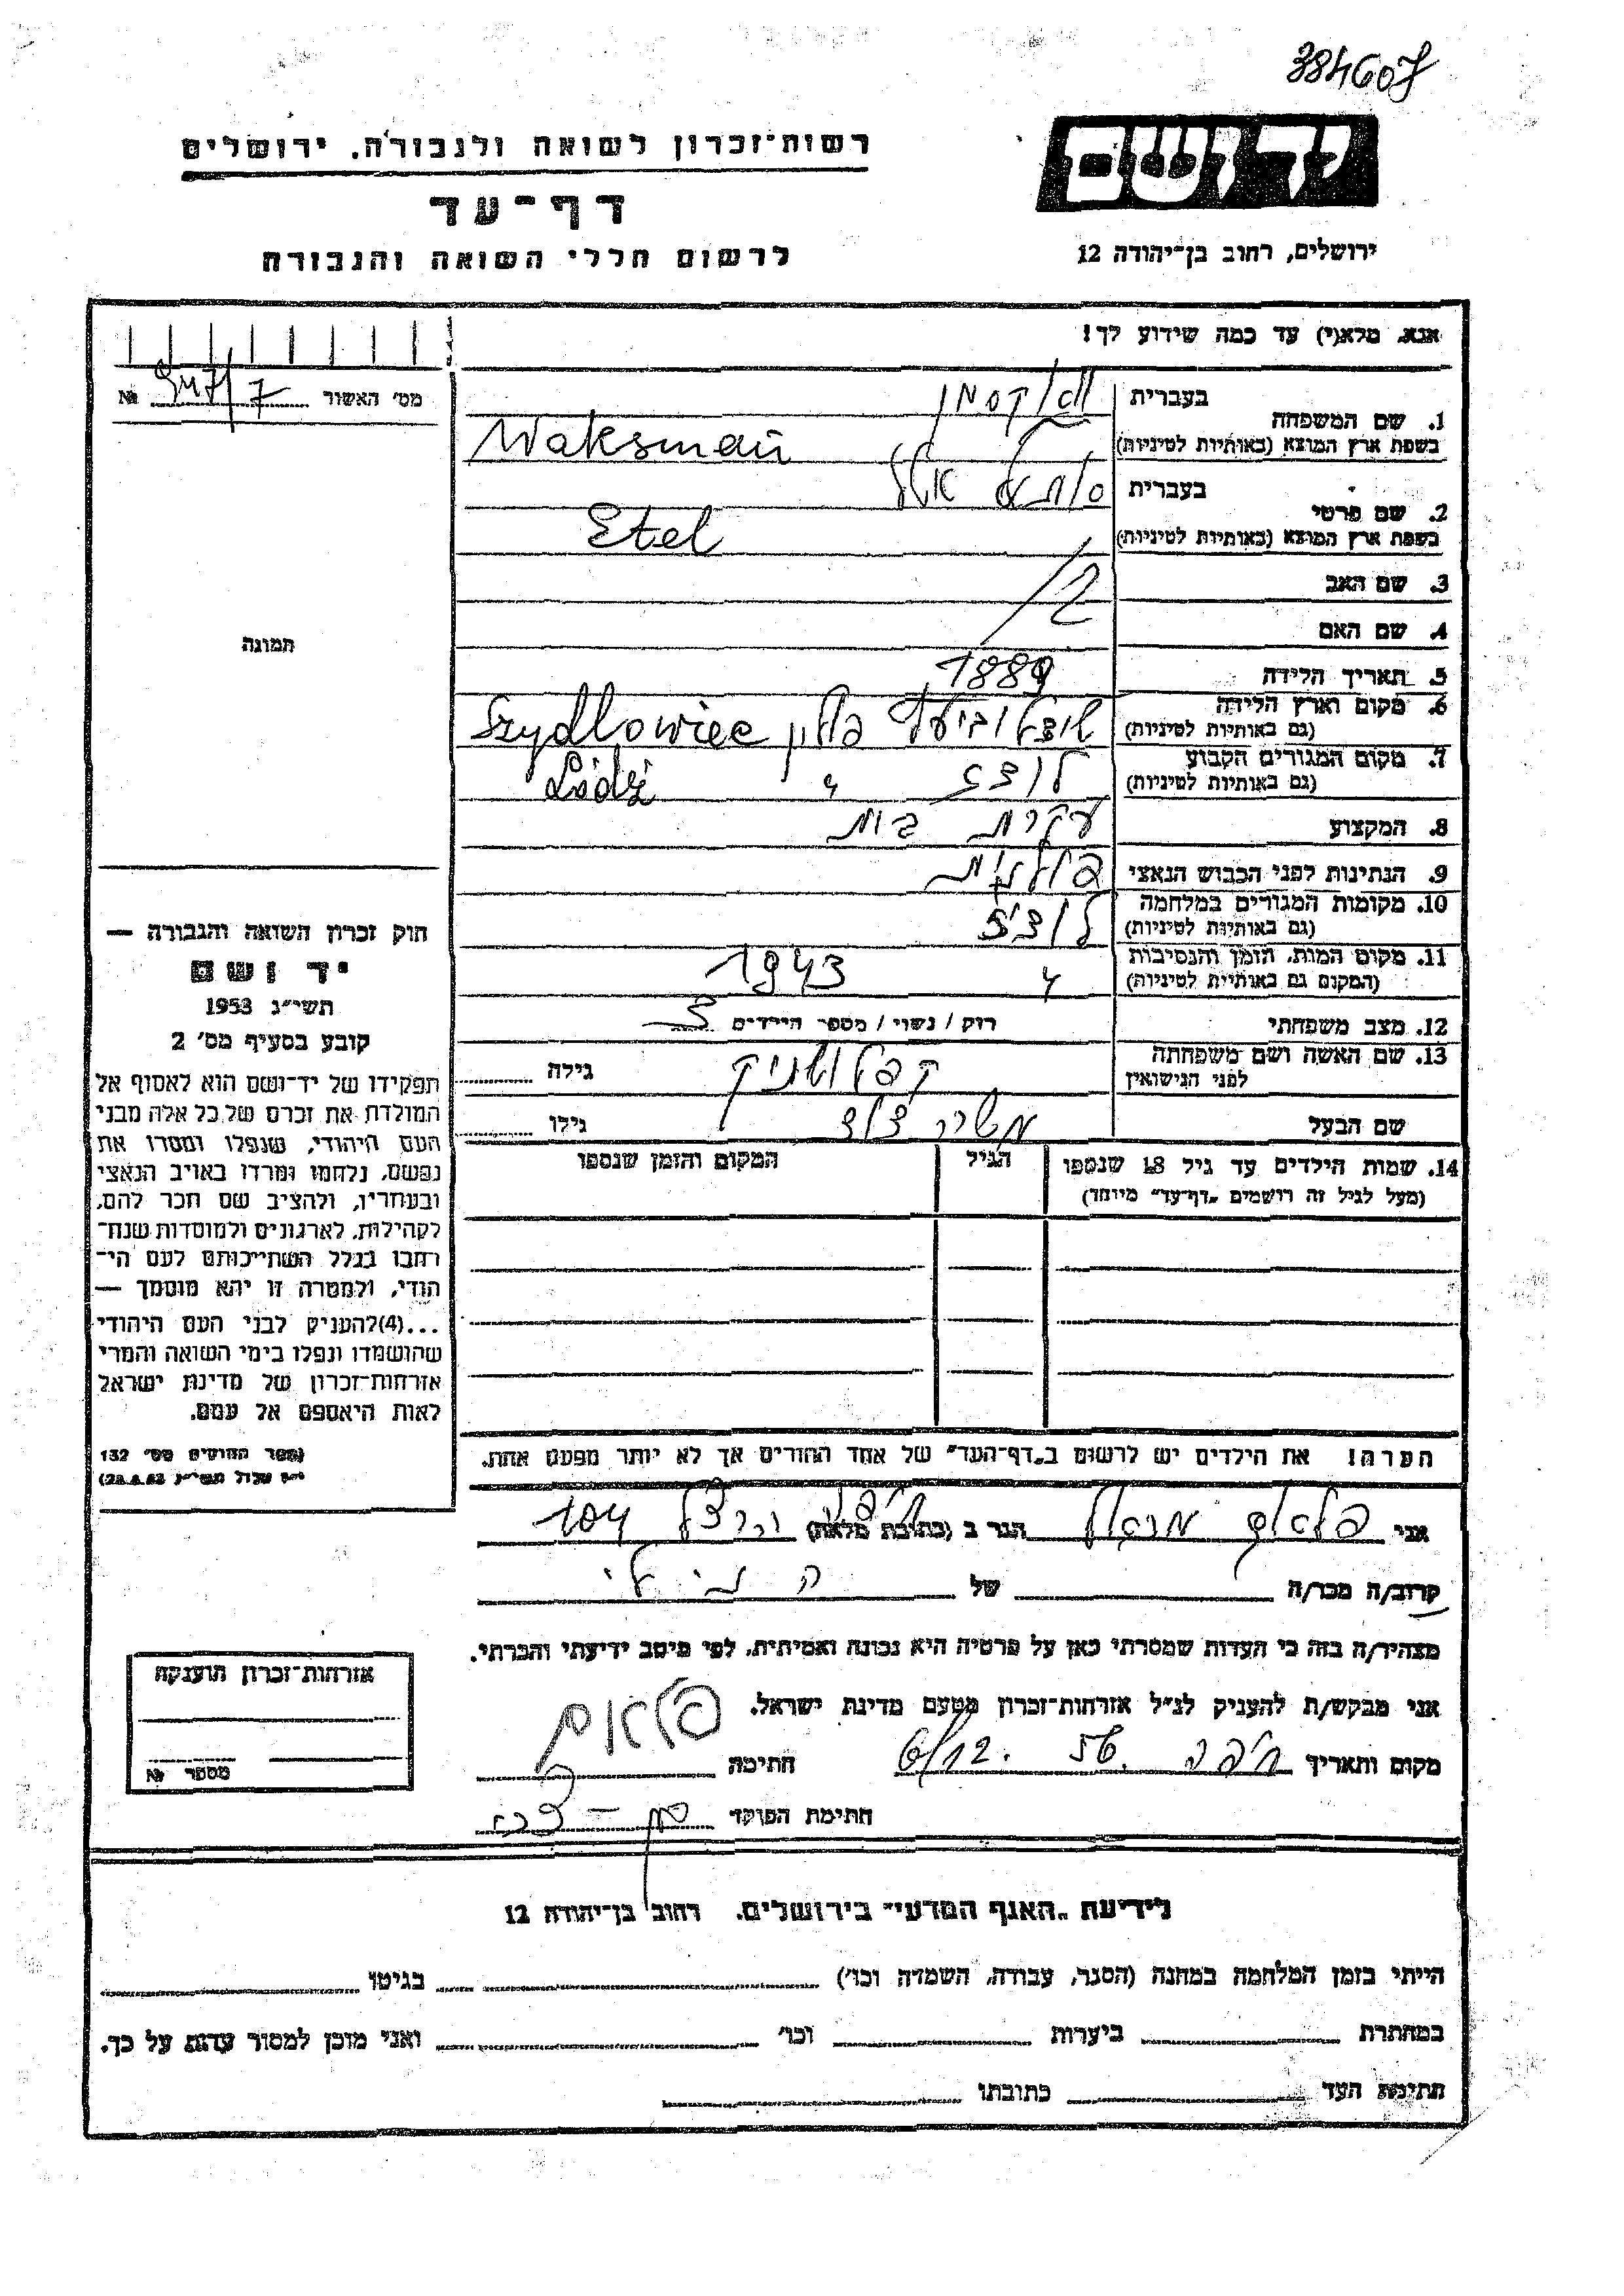 384607
יד ושם
רשות־זכרון לשואה ולגבורה, ירושלים
דף־עד
לרשום חללי השואה והגבורה
ירושלים, רחוב בן־יהודה 12
אנא, מלא(י) עד כמה שידוע לך!
מס׳ האשור №
1. שם המשפחה
בעברית וואקסמן
בשפת ארץ המוצא (באותיות לטיניות) Waksman
2. שם פרטי
בעברית אטל
בשפת ארץ המוצא (באותיות לטיניות) Etel
3. שם האב
4. שם האם
תמונה
5. תאריך הלידה 1889
6. מקום וארץ הלידה
(גם באותיות לטיניות) פולין Szydlowiec
7. מקום המגורים הקבוע
(גם באותיות לטיניות) לודז׳ " Lódź
8. המקצוע עקרת בית
9. הנתינות לפני הכבוש הנאצי פולנית
10. מקומות המגורים במלחמה
(גם באותיות לטיניות) לודז׳
11. מקום המות, הזמן והנסיבות
(המקום גם באותיות לטיניות) " 1943
12. מצב משפחתי רווק / נשוי / מספר הילדים
13. שם האשה ושם משפחתה
לפני הנישואין גילה
שם הבעל גילו
14. שמות הילדים עד גיל 18 שנספו
(מעל לגיל זה רושמים „דף־עד” מיוחד)
הגיל
המקום והזמן שנספו
חוק זכרון השואה והגבורה —
יד ושם
תשי״ג 1953
קובע בסעיף מס׳ 2
תפקידו של יד־ושם הוא לאסוף אל
המולדת את זכרם של כל אלה מבני
העם היהודי, שנפלו ומסרו את
נפשם, נלחמו ומרדו באויב הנאצי
ובעוזריו, ולהציב שם וזכר להם,
לקהילות, לארגונים ולמוסדות שנח־
רבו בגלל השתייכותם לעם הי־
הודי, ולמטרה זו יהא מוסמך —
...(4) להעניק לבני העם היהודי
שהושמדו ונפלו בימי השואה והמרי
אזרחות־זכרון של מדינת ישראל
לאות היאספם אל עמם.
(ספר החוקים מס׳ 132
י״ז אלול תשי״ג 28.8.53)
הערה! את הילדים יש לרשום ב„דף־העד” של אחד ההורים אך לא יותר מפעם אחת.
אני הגר ב (כתובת מלאה) חיפה הרצל 104
קרוב/ה מכר/ה של
מצהיר/ה בזה כי העדות שמסרתי כאן על פרטיה היא נכונה ואמיתית, לפי מיטב ידיעתי והכרתי.
אני מבקש/ת להעניק לנ״ל אזרחות־זכרון מטעם מדינת ישראל.
מקום ותאריך חיפה 6/12. 56. חתימה
חתימת הפוקד
אזרחות־זכרון הוענקה
מספר №
לידיעת „האגף המדעי” בירושלים, רחוב בן־יהודה 12
הייתי בזמן המלחמה במחנה (הסגר, עבודה, השמדה וכו׳) בגיטו
במחתרת ביערות וכו׳ ואני מוכן למסור עדות על כך.
חתימת העד כתובתו